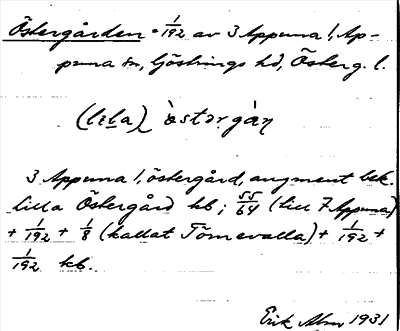 Östergården = 1/192 av 3 Appuna !, Ap-
puna sn, Göstrings hd, Österg. l.
(lɩla) östərgån
3 Appuna !, östergård, augment bek.
Lilla Östergård kb; 55/64 (till 7 Appuna)
+ 1/192 + 1/8 (kallat Tömevalla) + 1/192 +
1/192 kb.
Erik 1931